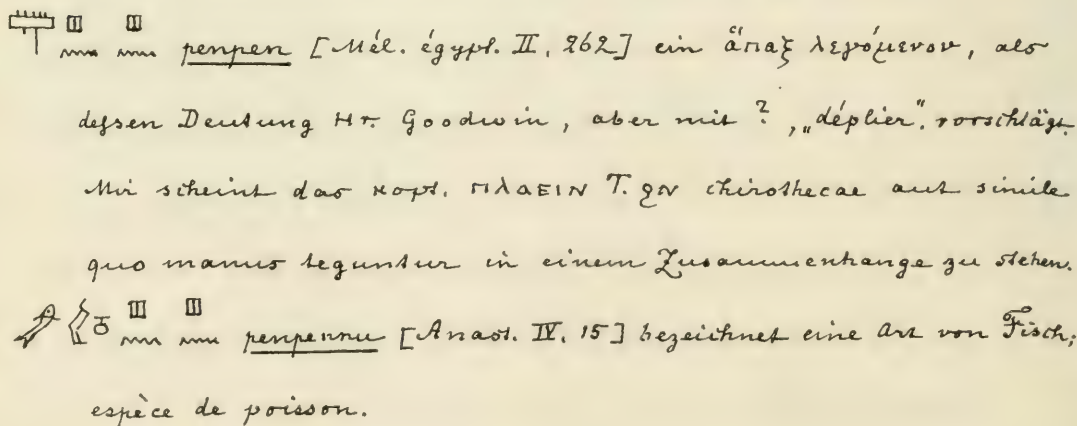 penpen [Mél. égypt. II, 262] ein ἅπαξ λεγόμενον, als
dessen Deutung Hr. Goodwin, aber mit ?, „déplier“. vorschlägt.
Mir scheint das kopt. ⲡⲗⲁⲉⲓⲛ T. ϩⲛ chirothecae aut simile
quo manus teguntur in einem Zusammenhange zu stehen.
penpennu [Anast. IV. 15] bezeichnet eine Art von Fisch;
espèce de poisson.